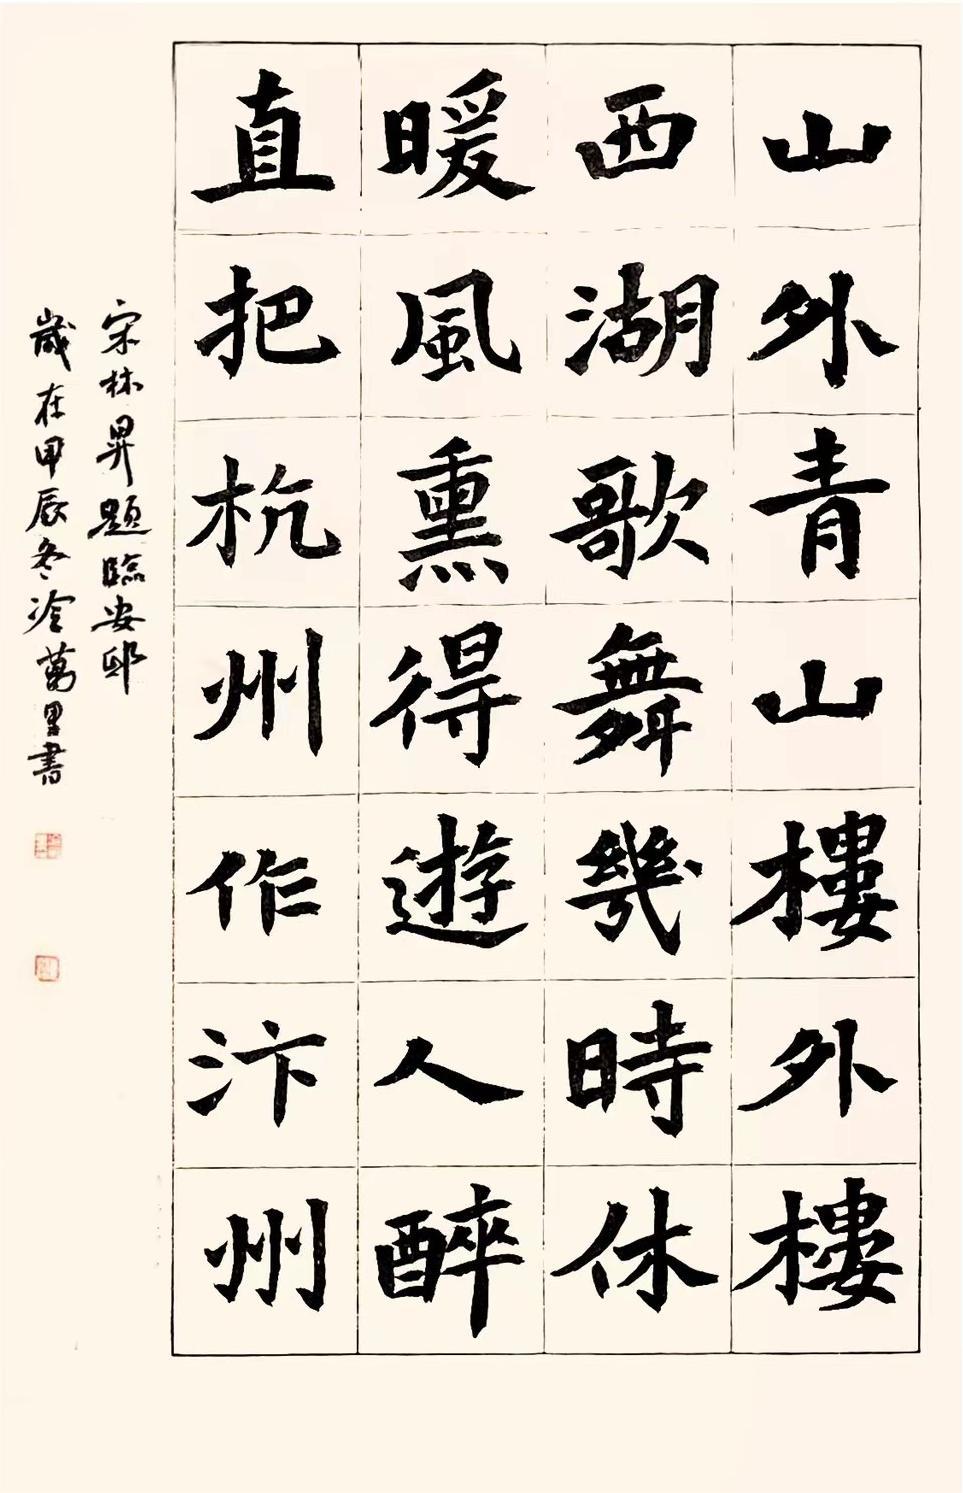 山外青山樓外樓
西湖歌舞幾時休
暖風熏得遊人醉
直把杭州作汴州
宋林昇題臨安邸
歲在甲辰冬冷萬里書